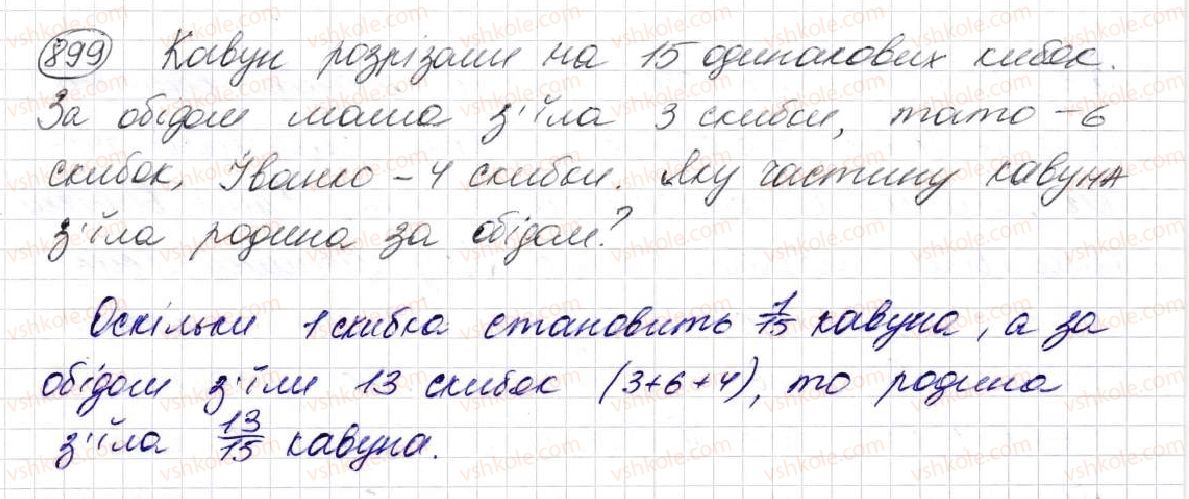 899 Кавун розрізали на 15 одинакових скибок.
За обідом мама з'їла 3 скибки, тато – 6
скибок, Іванко – 4 скибки. Яку частину кавуна
з'їла родина за обідом?
Оскільки 1 скибка становить 1/15 кавуна, а за
обідом з'їли 13 скибок (3+6+4), то родина
з'їла 13/15 кавуна.